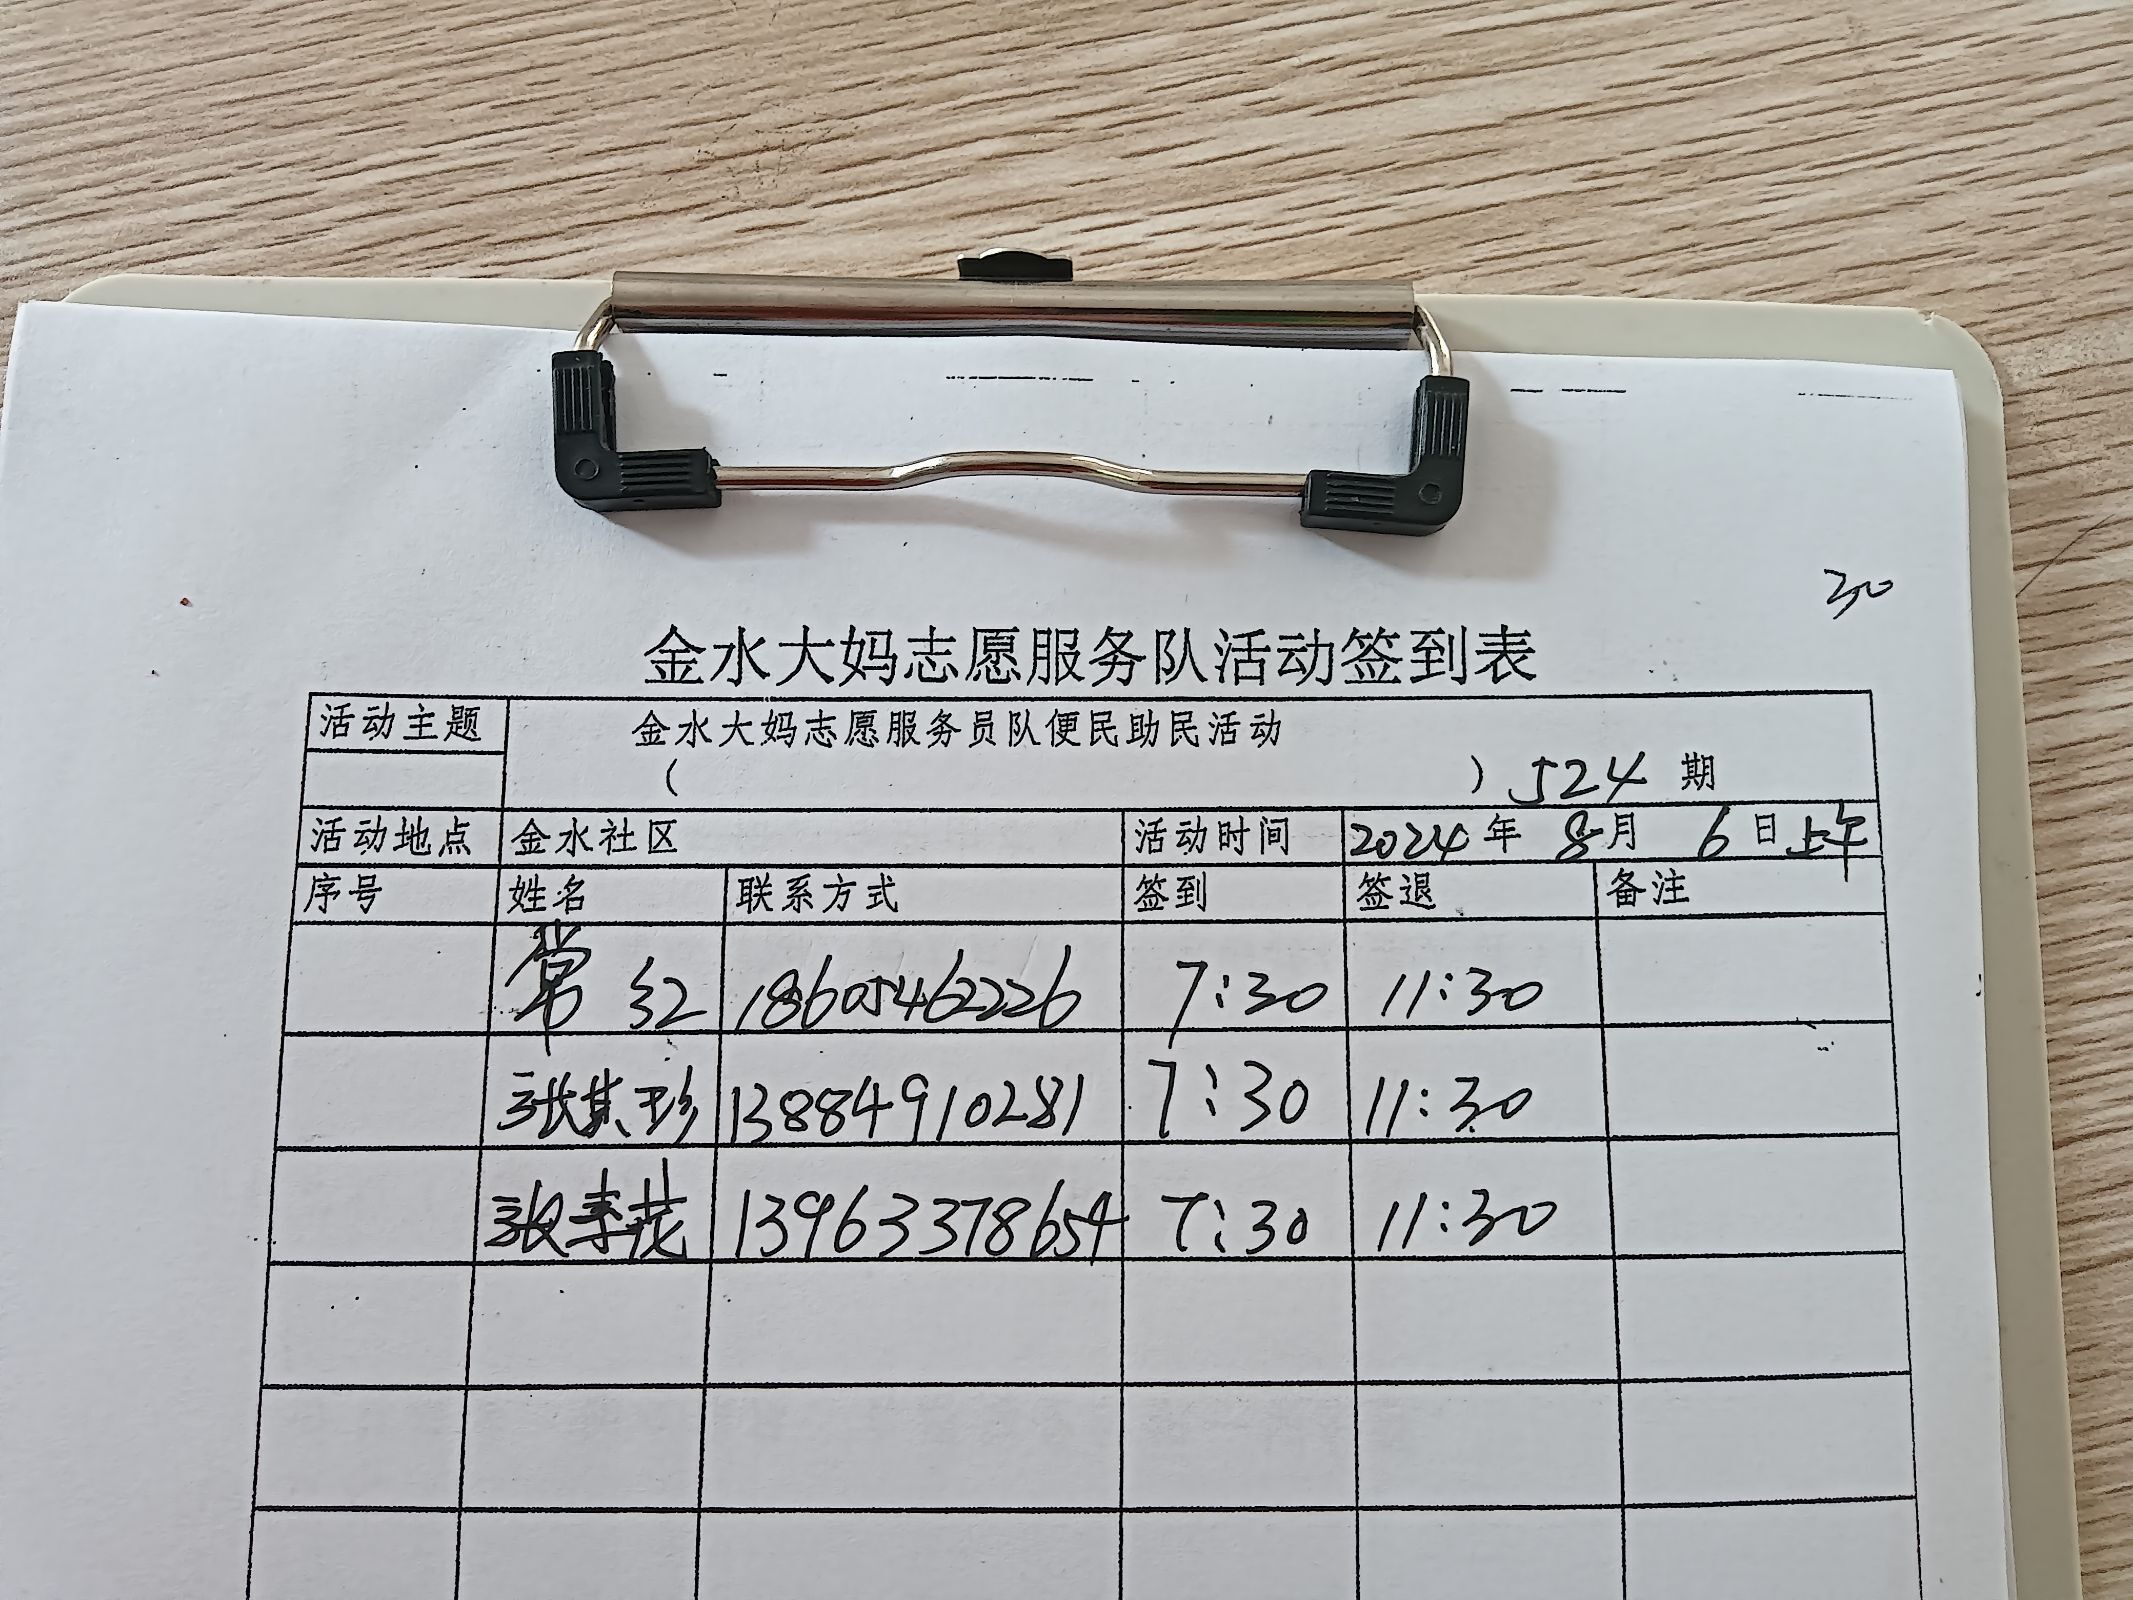 30
金水大妈志愿服务队活动签到表
活动主题 金水大妈志愿服务员队便民助民活动
( ) 524 期
活动地点 金水社区 活动时间 2024年 8月 6日上午
序号 姓名 联系方式 签到 签退 备注
常红 18605462226 7:30 11:30
张其珍 13884910281 7:30 11:30
张 花 13963378654 7:30 11:30